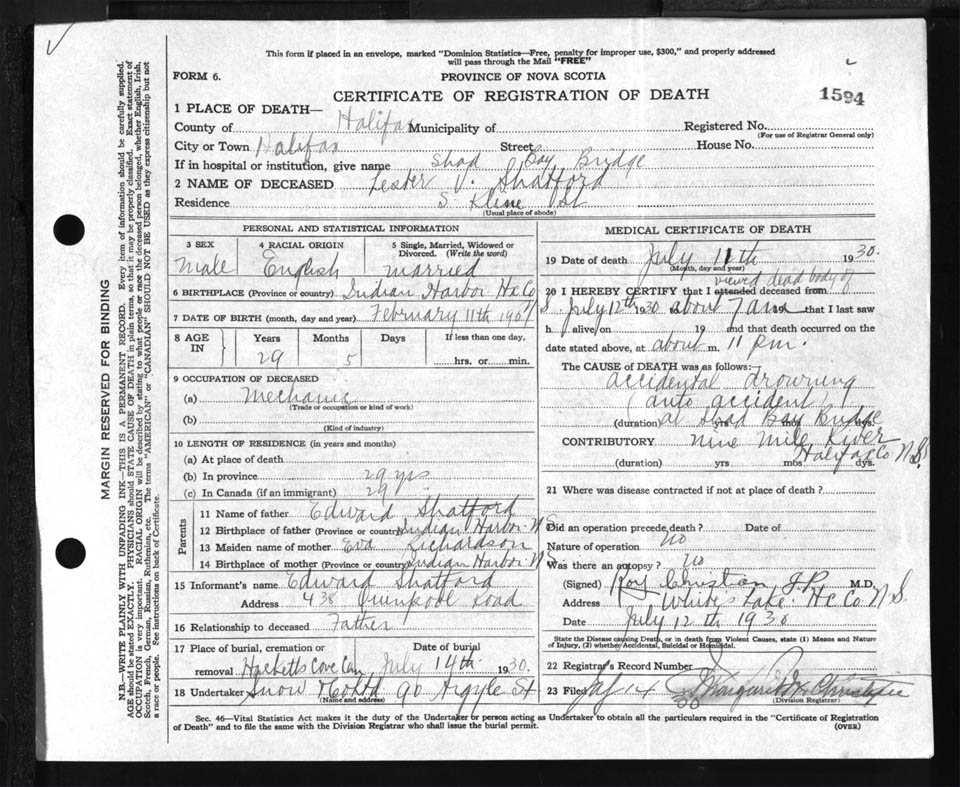 This form if placed in an envelope, marked "Dominion Statistics—Free, penalty for improper use, $300," and properly addressed
will pass through the Mail "FREE"
FORM 6.
PROVINCE OF NOVA SCOTIA
CERTIFICATE OF REGISTRATION OF DEATH
1594
1 PLACE OF DEATH—
County of Halifax Municipality of Registered No.
(For use of Registrar General only)
City or Town Halifax Street House No.
If in hospital or institution, give name Shad Bay Bridge
2 NAME OF DECEASED Lester V. Shatford
Residence S. Kline St
(Usual place of abode)
PERSONAL AND STATISTICAL INFORMATION
3 SEX 4 RACIAL ORIGIN 5 Single, Married, Widowed or Divorced. (Write the word)
Male English married
6 BIRTHPLACE (Province or country) Indian Harbor Hx Co NS
7 DATE OF BIRTH (month, day and year) February 11th
8 AGE IN Years Months Days If less than one day,
29 5 hrs. or min.
9 OCCUPATION OF DECEASED
(a) Mechanic
(Trade or occupation or kind of work)
(b)
(Kind of industry)
10 LENGTH OF RESIDENCE (in years and months)
(a) At place of death
(b) In province 29 yrs
(c) In Canada (if an immigrant) 29
Parents
11 Name of father Edward Shatford
12 Birthplace of father (Province or country) Indian Harbor N S
13 Maiden name of mother Eva Richardson
14 Birthplace of mother (Province or country) Indian Harbor N S
15 Informant's name Edward Shatford
Address 438 Quinpool Road
16 Relationship to deceased Father
17 Place of burial, cremation or removal Date of burial
Hacketts Cove Cem July 14th 1930.
18 Undertaker Snow & Co Ltd 90 Argyle St
(Name and address)
MEDICAL CERTIFICATE OF DEATH
19 Date of death July 11th 1930.
(Month, day and year)
viewed dead body of
20 I HEREBY CERTIFY that I attended deceased from
July 12th 1930 to about 7 am 19 that I last saw
h alive on 19 and that death occurred on the
date stated above, at about m. 11 pm.
The CAUSE OF DEATH was as follows:—
accidental drowning
(auto accident)
(duration) at Shad Bay Bridge yrs mos dys.
CONTRIBUTORY nine mile River
Halifax Co N.S.
(duration) yrs mos dys.
21 Where was disease contracted if not at place of death?
Did an operation precede death? Date of
Nature of operation no
Was there an autopsy? no
(Signed) Roy Christian J.P. M.D.
Address Whites Lake Hx Co N S
Date July 12th 1930
State the Disease causing Death, or in death from Violent Causes, state (1) Means and Nature of Injury, (2) whether Accidental, Suicidal or Homicidal.
22 Registrar's Record Number
23 Filed 14
(Division Registrar)
Sec. 46—Vital Statistics Act makes it the duty of the Undertaker or person acting as Undertaker to obtain all the particulars required in the "Certificate of Registration
of Death" and to file the same with the Division Registrar who shall issue the burial permit. (OVER)
MARGIN RESERVED FOR BINDING
N.B.—WRITE PLAINLY WITH UNFADING INK—THIS IS A PERMANENT RECORD. Every item of information should be carefully supplied.
AGE should be stated EXACTLY. PHYSICIANS should STATE CAUSE OF DEATH in plain terms, so that it may be properly classified. Exact statement of
OCCUPATION is very important. RACIAL ORIGIN will be described by stating to what people or race the deceased person belonged, whether English, Irish,
Scotch, French, German, Russian, Ruthenian, etc. The terms "AMERICAN" or "CANADIAN" SHOULD NOT BE USED as they express citizenship but not
a race or people. See instructions on back of Certificate.